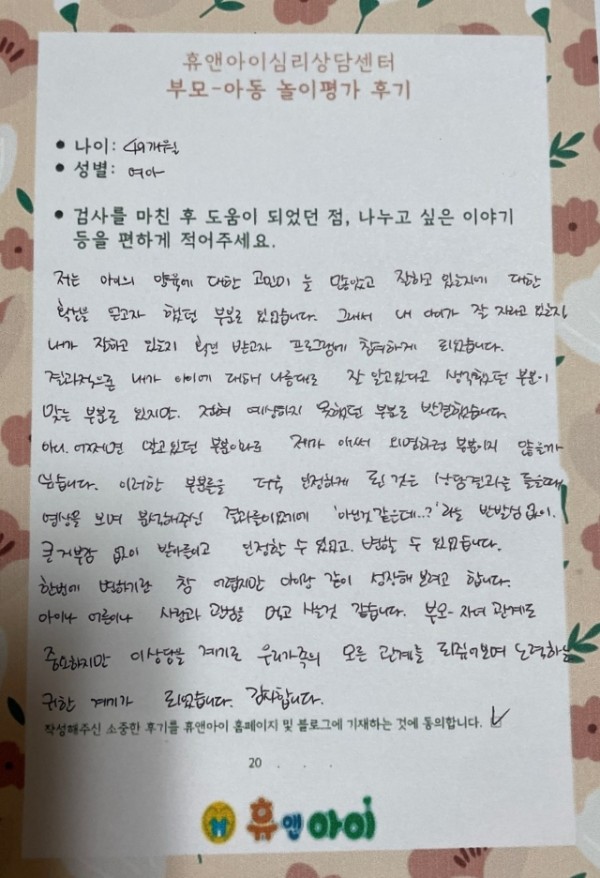 휴앤아이심리상담센터
부모-아동 놀이평가 후기
• 나이: 49개월
• 성별: 여아
• 검사를 마친 후 도움이 되었던 점, 나누고 싶은 이야기
등을 편하게 적어주세요.
저는 아이의 양육에 대한 고민이 늘 많았고 잘하고 있는지에 대한
확신을 얻고자 했던 부분도 있었습니다. 그래서 내 아이가 잘 자라고 있는지,
내가 잘하고 있는지 확인 받고자 프로그램에 참여하게 되었습니다.
결과적으론 내가 아이에 대해 나름대로 잘 알고있다고 생각했던 부분이
맞는 부분도 있지만. 전혀 예상하지 못했던 부분도 발견했습니다.
아니. 어쩌면 알고있던 부분이나 제가 애써 외면하던 부분이지 않을까
싶습니다. 이러한 부분들을 더욱 인정하게 된 것은 상담결과를 들을때,
영상을 보며 분석해주신 결과들이었기에 '아닌것 같은데..?' 라는 반발심 없이.
큰 거부감 없이 받아들이고 인정할 수 있었고. 변할 수 있었습니다.
한번에 변하기란 참 어렵지만 아이랑 같이 성장해 보려고 합니다.
아이나 어른이나 사랑과 관심을 먹고 사는것 같습니다. 부모-자녀 관계도
중요하지만 이상담을 계기로 우리가족의 모든 관계를 되짚어보며 노력하는
귀한 계기가 되었습니다. 감사합니다.
작성해주신 소중한 후기를 휴앤아이 홈페이지 및 블로그에 기재하는 것에 동의합니다. ✓
20 . . .
휴앤아이